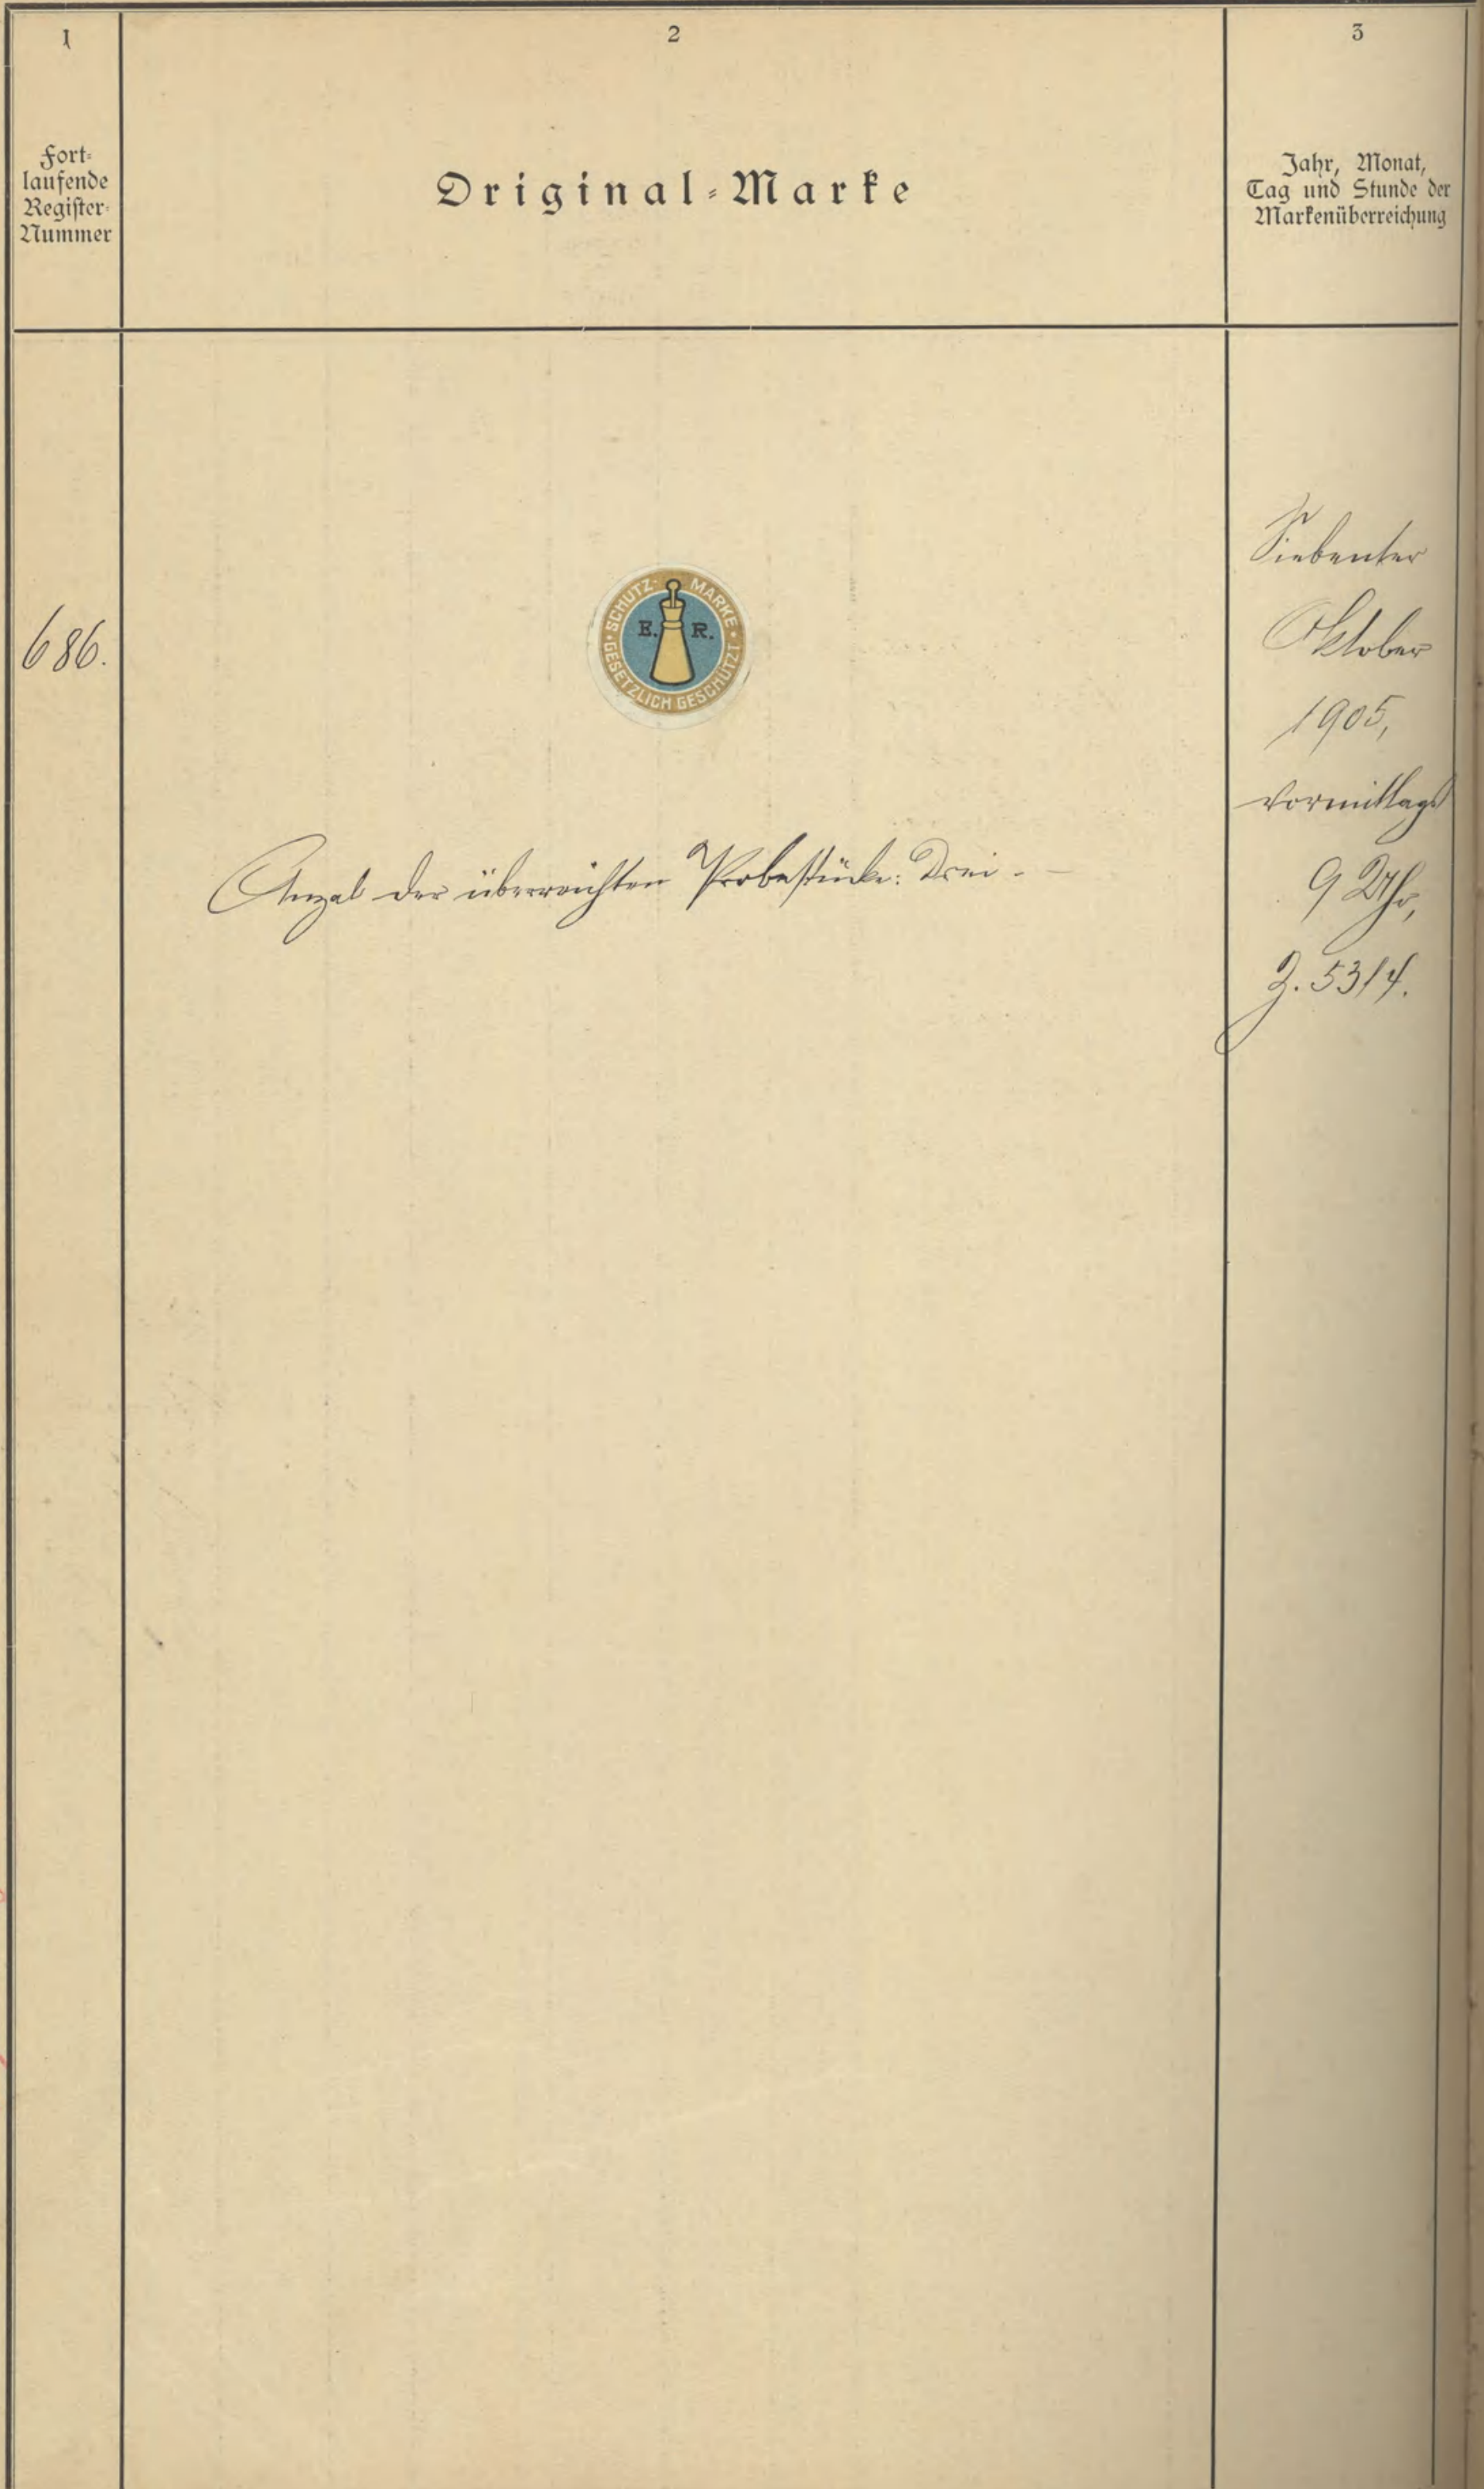 1
2
3
Fort-
laufende
Register-
Nummer
Original-Marke
Jahr, Monat,
Tag und Stunde der
Markenüberreichung
686.
SCHUTZ- MARKE
E. R.
GESETZLICH GESCHÜTZT
Anzal der überreichten Probestücke: Drei.
Siebenter
Oktober
1905,
vormittags
9 Uhr,
Z. 5314.